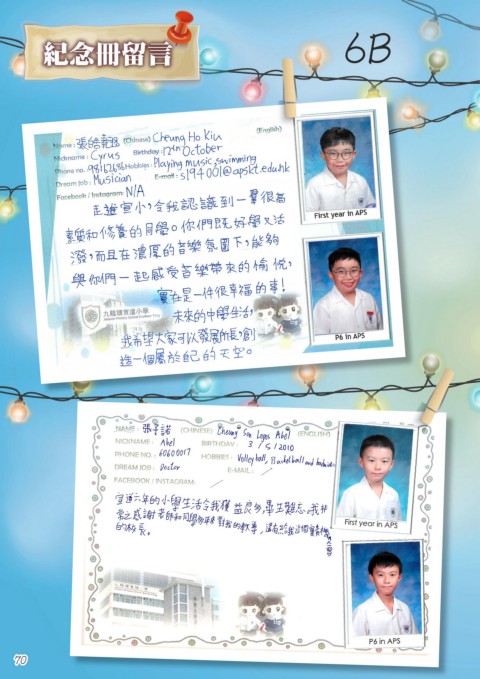 紀念冊留言
6B
Name: 張皓翹 (Chinese) Cheung Ho Kiu (English)
Nickname: Cyrus Birthday: 12th October
Phone no. 98162686 Hobbies: Playing music, swimming
Dream Job: Musician E-mail: s194001@apskt.edu.hk
Facebook / Instagram: N/A
走進宣小,令我認識到一羣很高
素質和修養的同學。你們既好學又活
潑,而且在濃厚的音樂氛圍下,能夠
與你們一起感受音樂帶來的愉悅,
實在是一件很幸福的事!
未來的中學生活,
我希望大家可以發展所長,創
造一個屬於自己的天空。
九龍塘宣道小學
First year in APS
P6 in APS
NAME: 張 諾 (CHINESE) Cheung Lops Abel (ENGLISH)
NICKNAME: Abel BIRTHDAY: 3/5/2010
PHONE NO.: 60600017 HOBBIES: Volleyball, Basketball and
DREAM JOB: Doctor E-MAIL: /
FACEBOOK / INSTAGRAM: /
宣道六年的小學生活令我獲益良多,畢生難忘。我非
常之感謝老師和同學 對我的教導,還有給我這個 機會
的校長。
First year in APS
P6 in APS
70